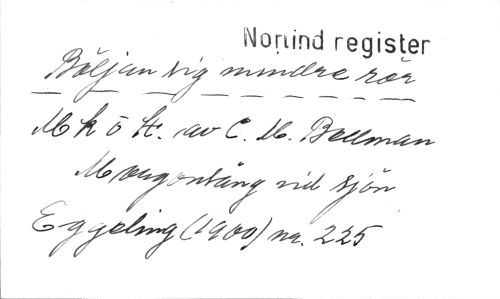 Norlind register
Böljan sig mindre rör
M k ö tt. av C. M. Bellman
Morgonsång vid sjön
Eggeling (1900) nr. 225